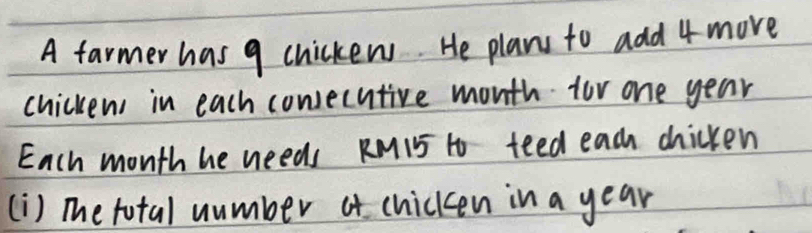 A farmer has 9 chickens. He plans to add 4 more
chickens in each consecutive month for one year
Each month he needs RM15 to feed each chicken
(i) The total number of chicken in a year